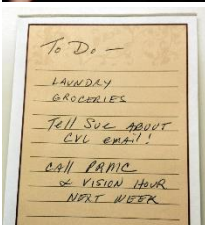 To Do -
LAUNDRY
GROCERIES
Tell Sue ABOUT
CVL email!
CALL PRMC
& VISION HOUR
NEXT WEEK